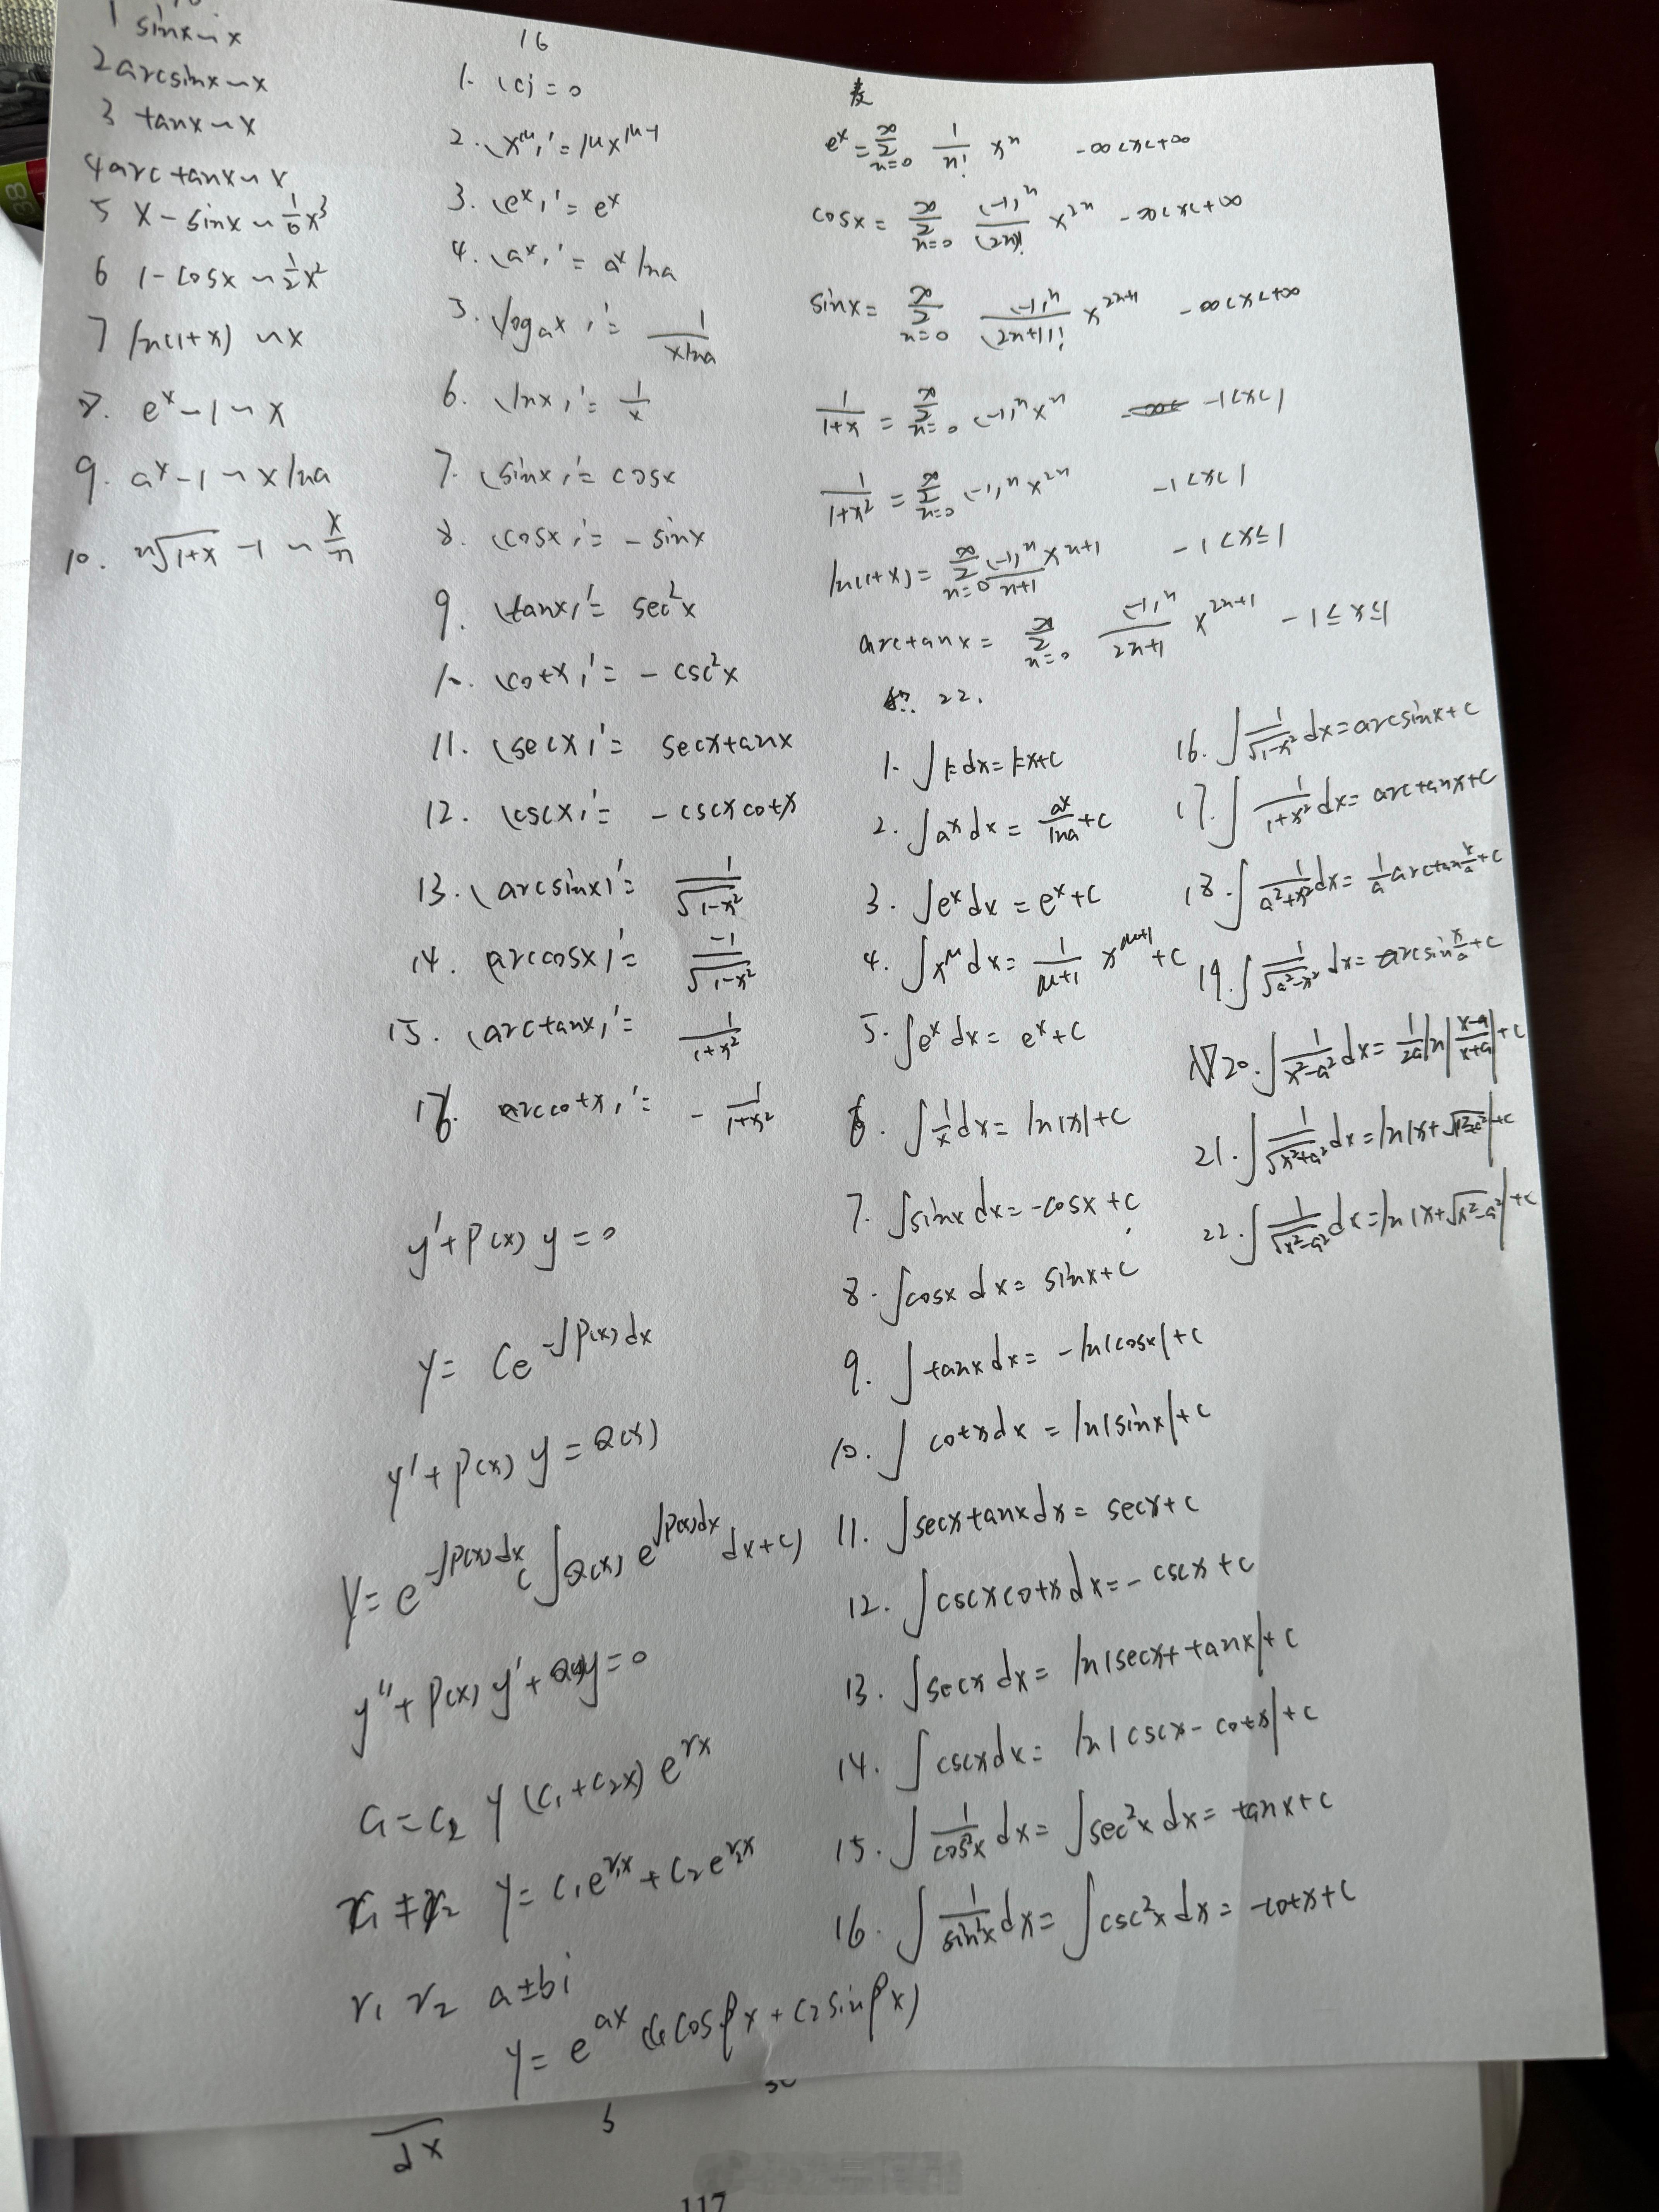 1 sinx~x
2 arcsinx~x
3 tanx~x
4 arc tanx~x
5 x-sinx~1/6 x³
6 1-cosx~1/2 x²
7 ln(1+x) ~x
8. e^x-1~x
9. a^x-1~xlna
10. ⁿ√(1+x) -1 ~ x/n
16
1. (c)'=0
2. (x^μ)'=μx^(μ-1)
3. (e^x)'=e^x
4. (a^x)'=a^x lna
5. (log_a x)'= 1/(xlna)
6. (lnx)'= 1/x
7. (sinx)'= cosx
8. (cosx)'= -sinx
9. (tanx)'= sec²x
10. (cotx)'= -csc²x
11. (secx)'= secxtanx
12. (cscx)'= -cscxcotx
13. (arcsinx)'= 1/√(1-x²)
14. (arccosx)'= -1/√(1-x²)
15. (arctanx)'= 1/(1+x²)
16. (arccotx)'= - 1/(1+x²)
y'+P(x)y=0
y= Ce^(-∫P(x)dx)
y'+P(x)y=Q(x)
y= e^(-∫P(x)dx) (∫Q(x)e^(∫P(x)dx) dx+c)
y''+P(x)y'+Q(x)y=0
r₁=r₂ y (c₁+c₂x)e^(rx)
r₁≠r₂ y= c₁e^(r₁x)+c₂e^(r₂x)
r₁ r₂ a±bi
y= e^(ax) (c₁cosβx+c₂sinβx)
e^x=∑_(n=0)^∞ 1/n! x^n -∞<x<+∞
cosx= ∑_(n=0)^∞ (-1)^n/(2n)! x^(2n) -∞<x<+∞
sinx= ∑_(n=0)^∞ (-1)^n/(2n+1)! x^(2n+1) -∞<x<+∞
1/(1+x) = ∑_(n=0)^∞ (-1)^n x^n -1<x<1
1/(1+x²) = ∑_(n=0)^∞ (-1)^n x^(2n) -1<x<1
ln(1+x)= ∑_(n=0)^∞ (-1)^n/(n+1) x^(n+1) -1<x≤1
arctanx= ∑_(n=0)^∞ (-1)^n/(2n+1) x^(2n+1) -1≤x≤1
22.
1. ∫kdx=kx+c
2. ∫a^x dx= a^x/lna +c
3. ∫e^x dx=e^x+c
4. ∫x^μ dx= 1/(μ+1) x^(μ+1)+c
5. ∫e^x dx= e^x+c
6. ∫1/x dx= ln|x|+c
7. ∫sinxdx=-cosx+c
8. ∫cosxdx= sinx+c
9. ∫tanxdx= -ln|cosx|+c
10. ∫cotxdx = ln|sinx|+c
11. ∫secxtanxdx= secx+c
12. ∫cscxcotxdx=-cscx+c
13. ∫secxdx= ln|secx+tanx|+c
14. ∫cscxdx= ln|cscx-cotx|+c
15. ∫1/cos²x dx= ∫sec²xdx= tanx+c
16. ∫1/sin²x dx= ∫csc²xdx= -cotx+c
16. ∫1/√(1-x²) dx=arcsinx+c
17. ∫1/(1+x²) dx= arctanx+c
18. ∫1/(a²+x²) dx= 1/a arctan x/a +c
19. ∫1/√(a²-x²) dx= arcsin x/a +c
20. ∫1/(x²-a²) dx= 1/2a ln|(x-a)/(x+a)|+c
21. ∫1/√(x²+a²) dx=ln|x+√(x²+a²)|+c
22. ∫1/√(x²-a²) dx=ln|x+√(x²-a²)|+c
dx
117